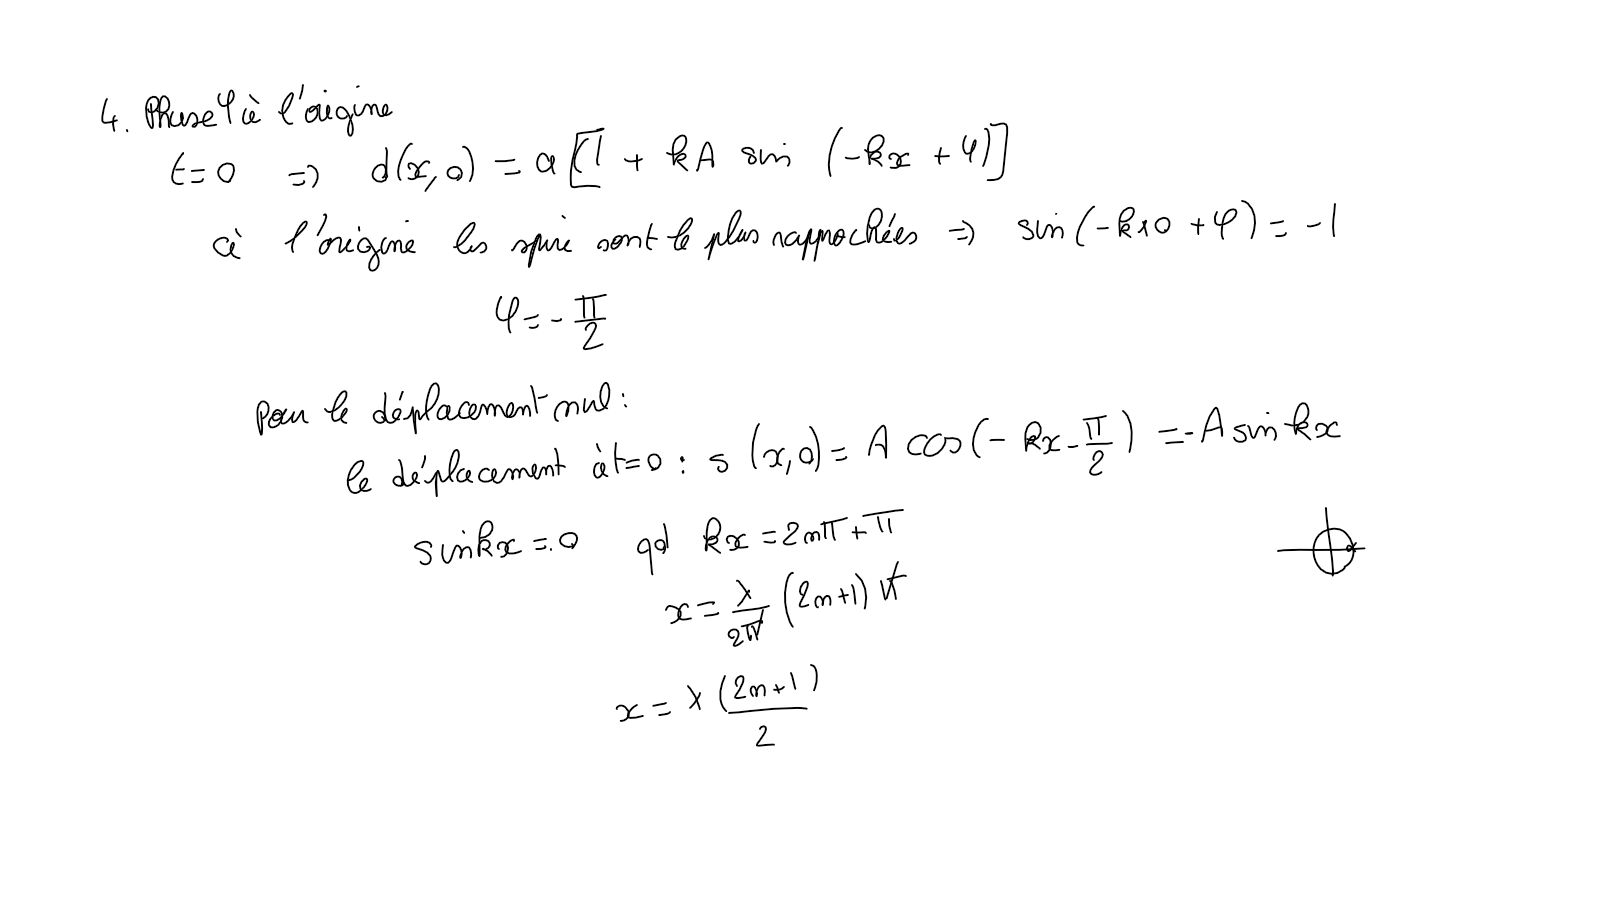 4. Phase φ à l'origine
t=0 => d(x,0) = a [1 + kA sin (-kx + φ)]
à l'origine les spire sont le plus rapprochées => sin(-k×0 + φ) = -1
φ = - π/2
Pour le déplacement nul :
le déplacement à t=0 : s (x,0) = A cos(- kx - π/2) = -A sin kx
sin kx = 0 qd kx = 2nπ + π
x = λ/2π (2n+1) π
x = λ (2n+1)/2